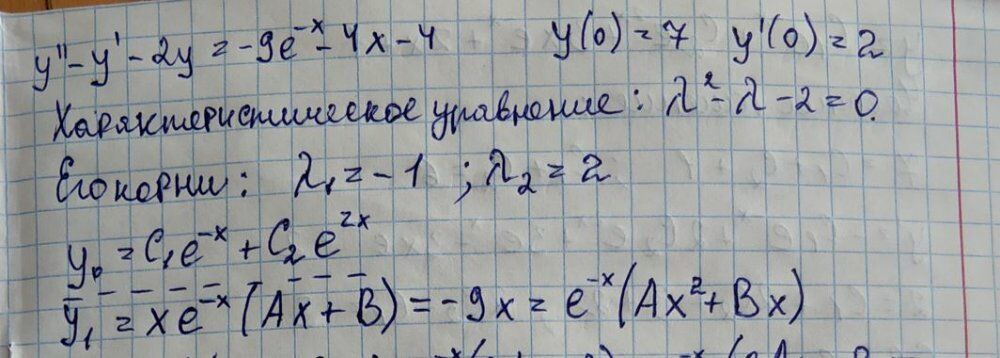 y'' - y' - 2y = -9e^{-x} - 4x - 4 y(0) = 7 y'(0) = 2
Характеристическое уравнение: λ² - λ - 2 = 0.
Его корни: λ₁ = -1 ; λ₂ = 2
y₀ = C₁e^{-x} + C₂e^{2x}
y₁ = xe^{-x}(Ax + B) = -9x = e^{-x}(Ax² + Bx)